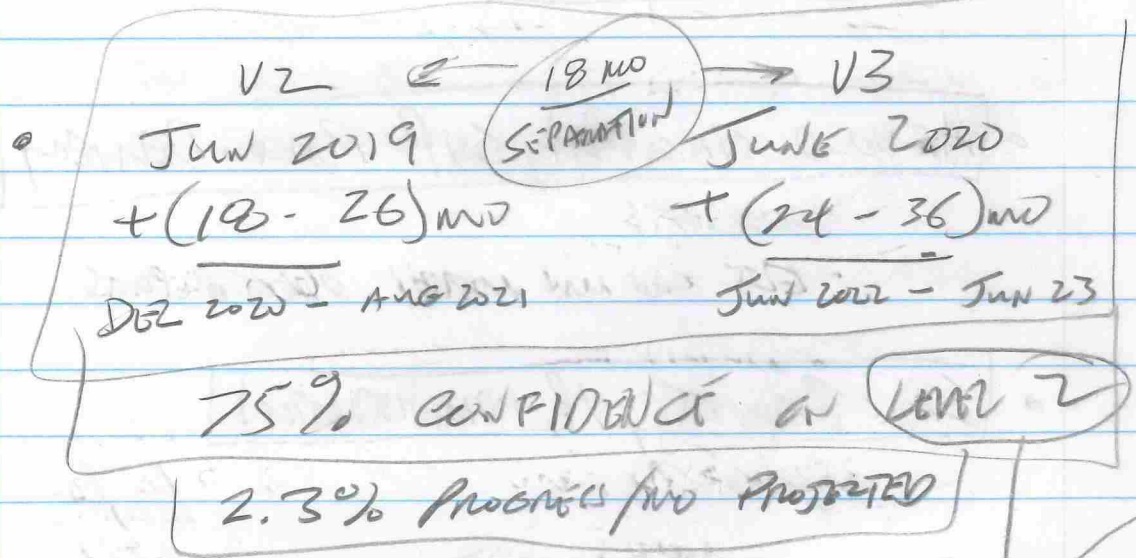 V2 ← 18 MO SEPARATION → V3
• JUN 2019 JUNE 2020
+(18 - 26) MO + (24 - 36) MO
DEZ 2020 - AUG 2021 JUN 2022 - JUN 23
75% CONFIDENCE ON LEVEL 2
2.3% PROGRESS/MO PROJEZTED